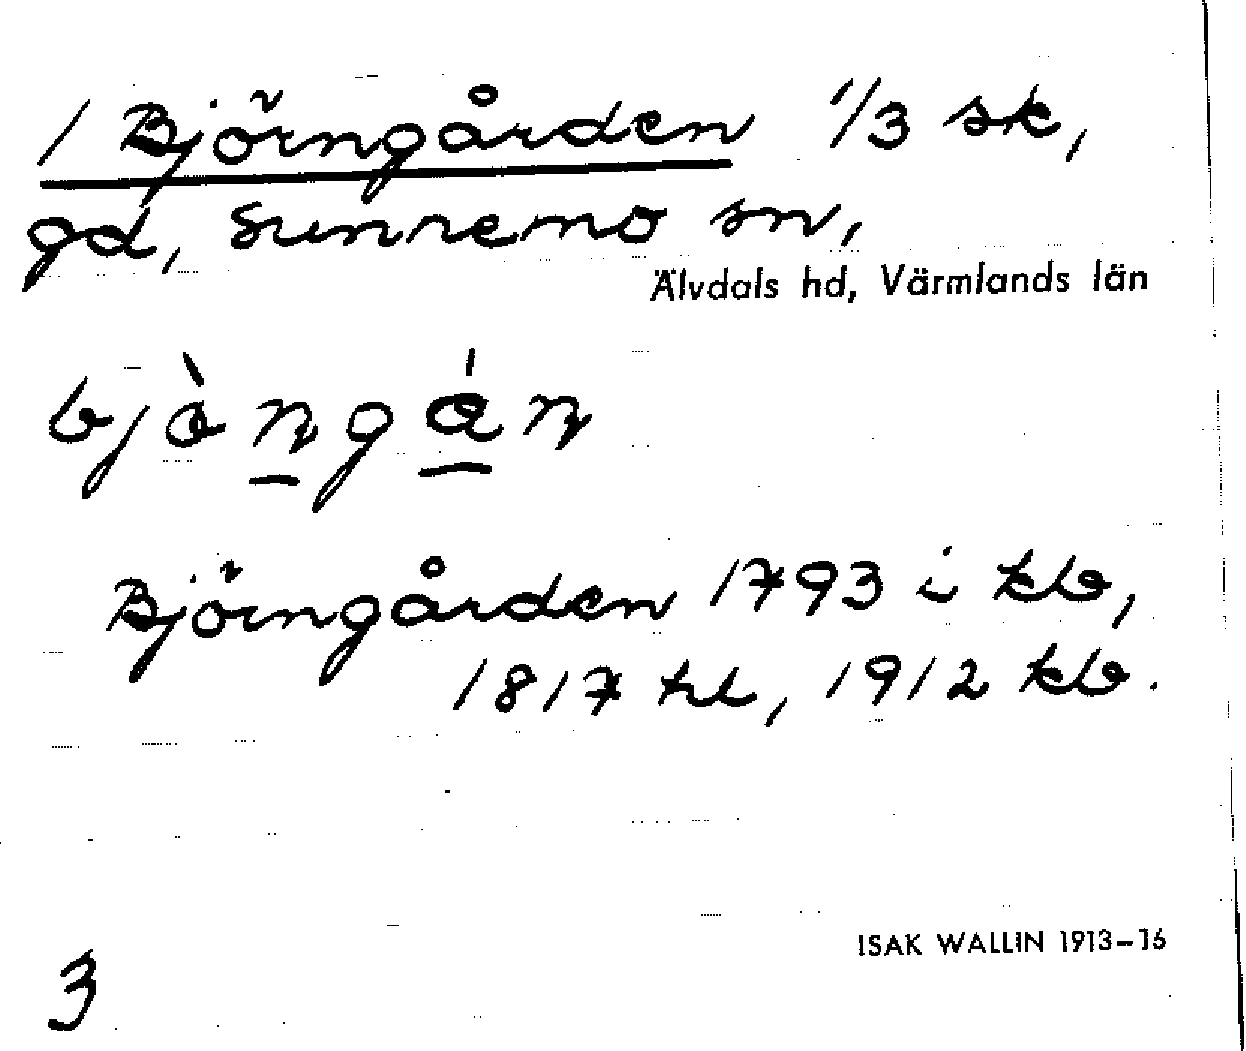 1 Björngården 1/3 sk,
gd, Sunnemo sn,
Älvdals hd, Värmlands län
bjὰngán
Björngården 1793 i kb,
1817 hl, 1912 kb.
ISAK WALLIN 1913–16
3